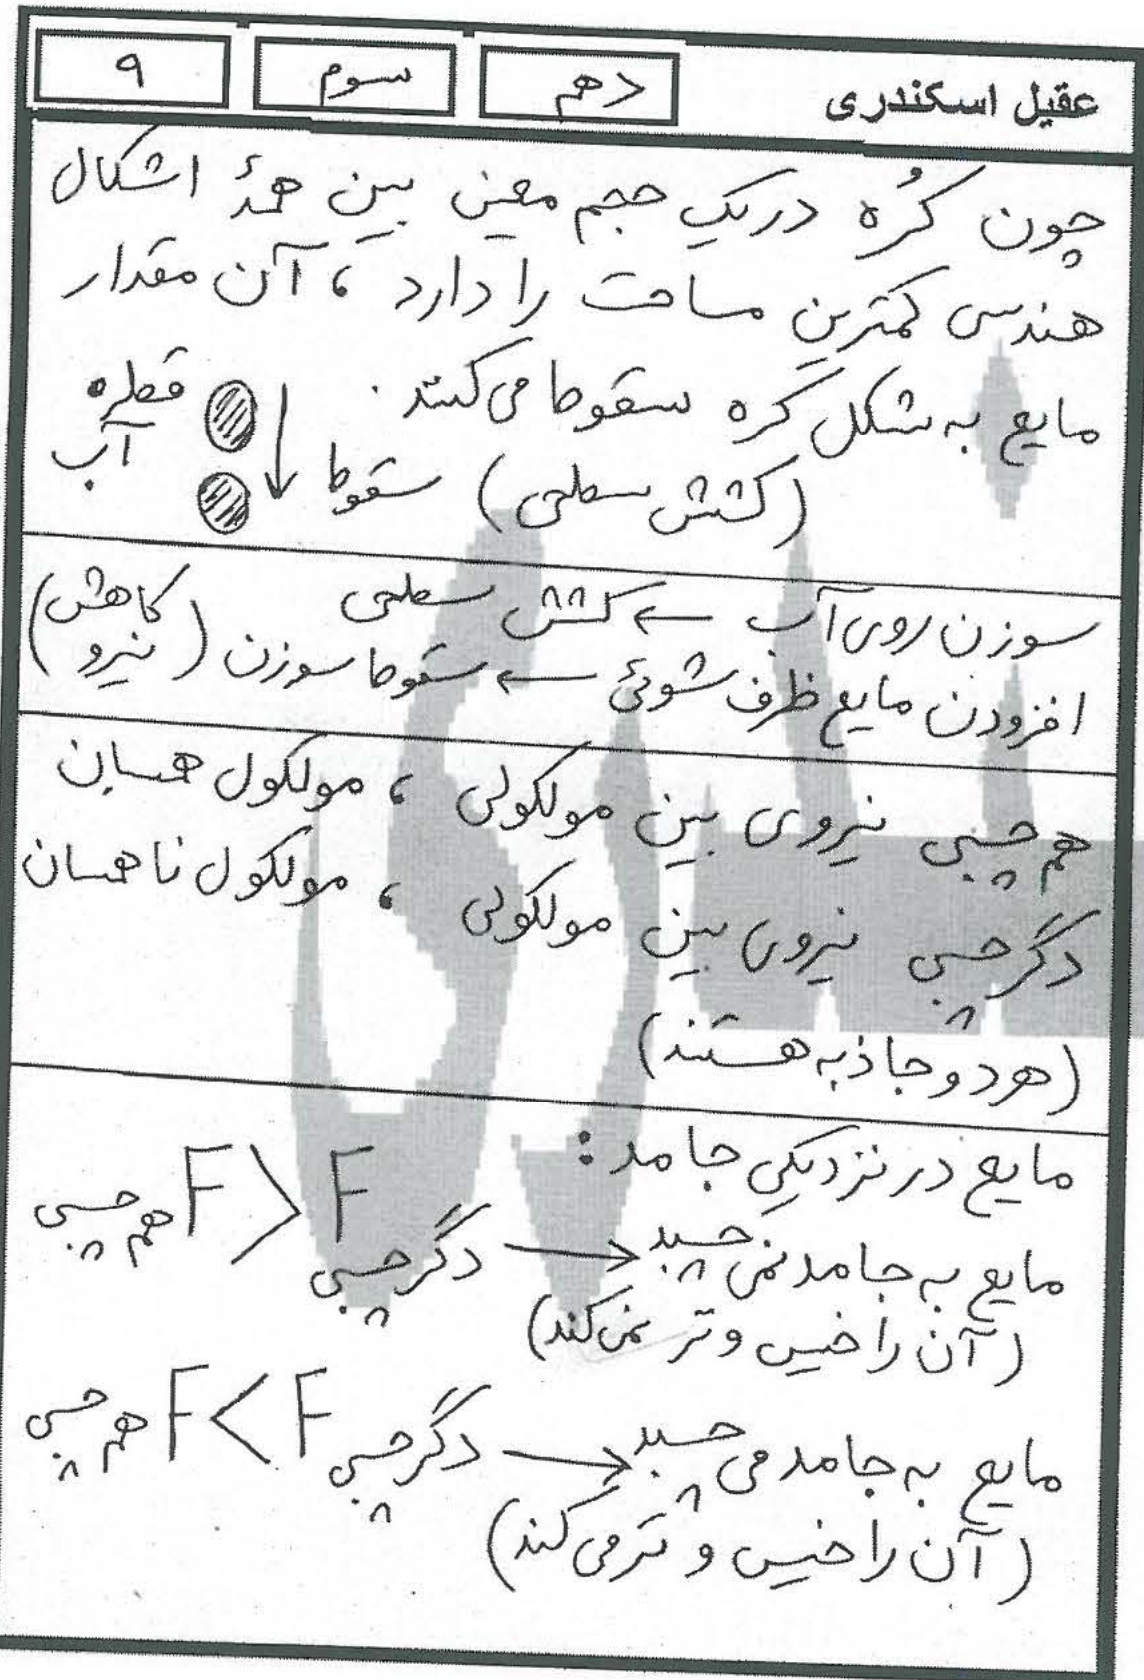 عقیل اسکندری
دهم
سوم
۹
چون کُره در یک حجم معین بین همهٔ اشکال
هندسی کمترین مساحت را دارد ، آن مقدار
مایع به شکل کره سقوط می‌کند .
قطره
آب
(کشش سطحی) سقوط
سوزن روی آب ← کشش سطحی
افزودن مایع ظرف شوئی ← سقوط سوزن (کاهش نیرو)
هم چسبی نیروی بین مولکولی ، مولکول همسان
دگرچسبی نیروی بین مولکولی ، مولکول ناهمسان
(هر دو جاذبه هستند)
مایع در نزدیکی جامد :
F هم چسبی > F دگرچسبی → مایع به جامد نمی چسبد
(آن را خیس و تر نمی‌کند)
F هم چسبی < F دگرچسبی → مایع به جامد می چسبد
(آن را خیس و تر می‌کند)